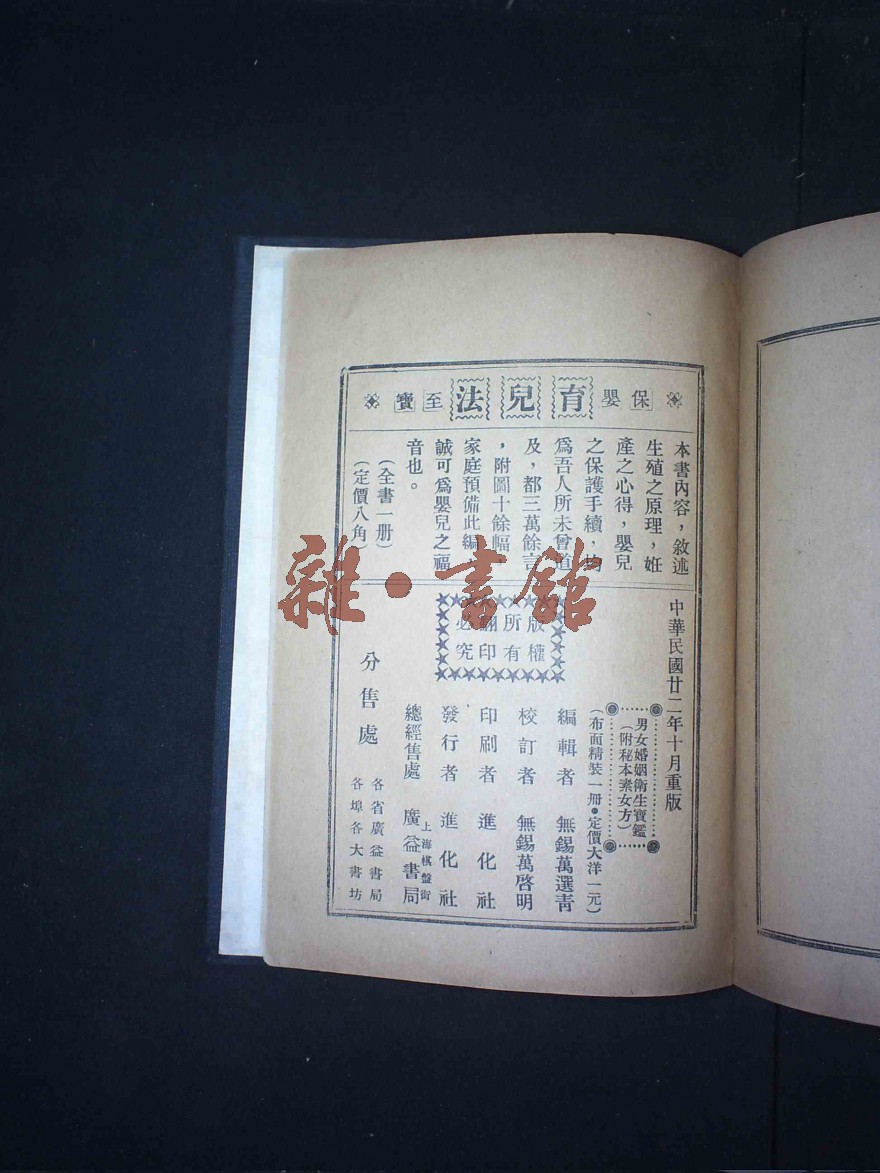 保嬰 育兒法 至寶
本書內容，敘述
生殖之原理，姙
產之心得，嬰兒
之保護手續，均
爲吾人所未曾道
及，都三萬餘言
，附圖十餘幅
家庭預備此編
誠可爲嬰兒之福
音也。
（全書一册）
（定價八角）
中華民國廿二年十月重版
男女婚姻衛生寶鑑
（附秘本素女方）
（布面精裝一册●定價大洋一元）
版權
所有
翻印
必究
編輯者 無錫萬選青
校訂者 無錫萬啓明
印刷者 進化社
發行者 進化社
總經售處 上海棋盤街 廣益書局
分售處 各省廣益書局 各埠各大書坊
雜·書館